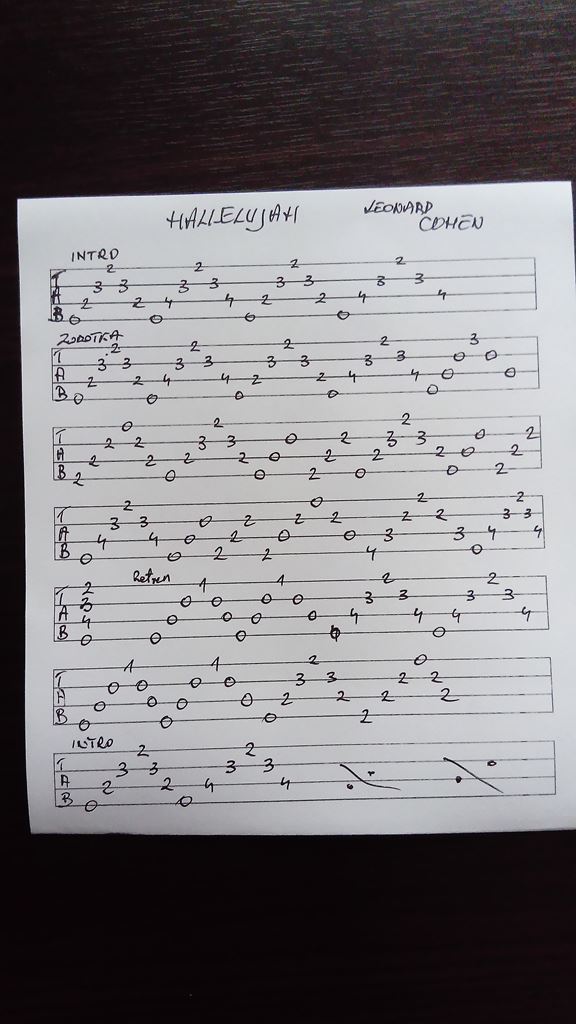 HALLELUJAH LEONARD COHEN
INTRO
T 2 2 2 2
A 3 3 3 3 3 3 3 3
2 2 4 4 2 2 4 4
B 0 0 0 0
T 2 2 2 2 3
3 3 3 3 3 3 3 3 0 0
A 2 2 4 4 2 2 4 4 0 0
B 0 0 0 0 0
T 0 2 2
2 2 3 3 0 2 3 3 0 2
A 2 2 2 2 0 2 2 2 0 2
B 2 0 0 2 0 0 2
T 2 0 2 2
3 3 0 2 2 2 2 2 3 3
A 4 4 0 2 0 0 3 3 4 4
B 0 0 2 2 4 0
2 Refren 1 1 2 2
T 3 0 0 0 0 3 3 3 3
A 4 0 0 0 0 4 4 4 4
B 0 0 0 0 0
1 1 2 0
T 0 0 0 0 3 3 2 2
A 0 0 0 0 2 2 2 2
B 0 0 0 2
INTRO
2 2
T 3 3 3 3
A 2 2 4 4
B 0 0